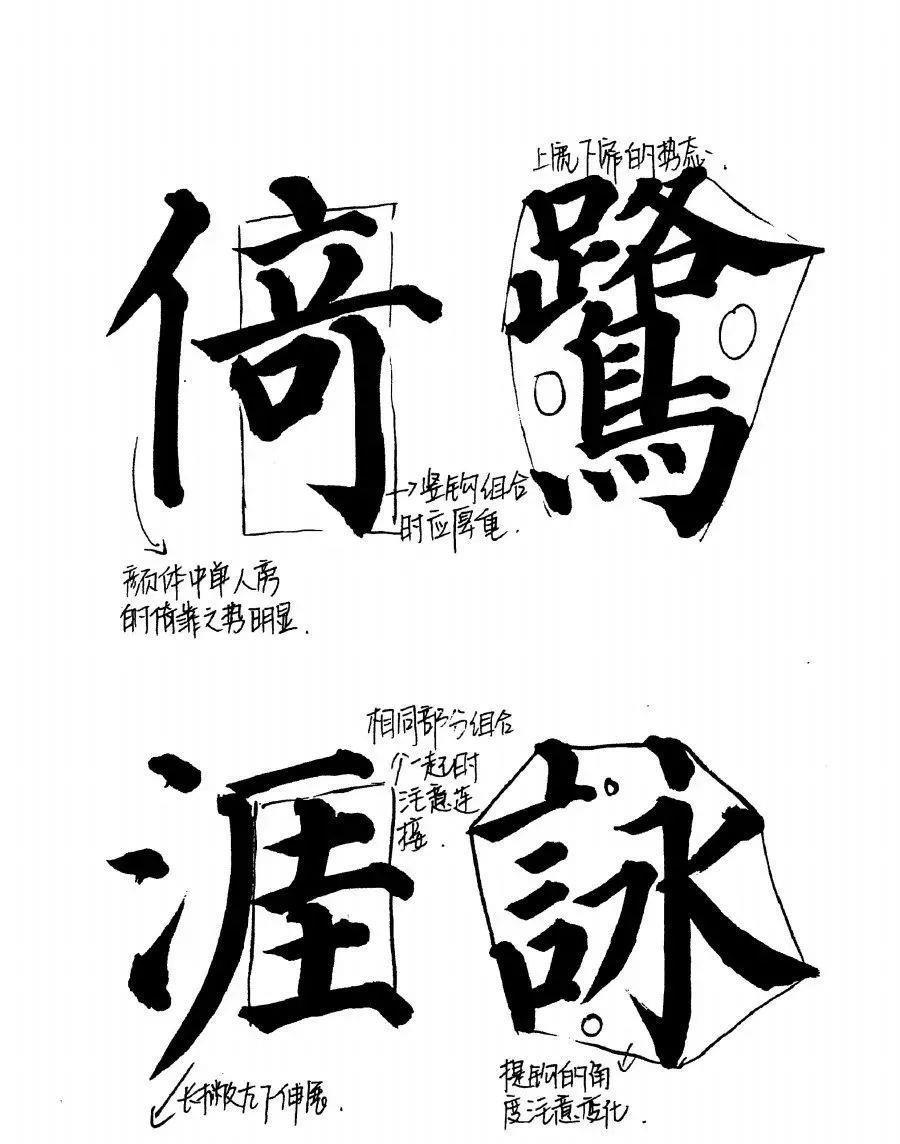 上宽下窄的势态.
倚 鷺
竖钩组合
时应厚重.
颜体中单人旁
的倚靠之势明显.
相同部分组合
在一起时
注意连
接.
涯 詠
长撇左下伸展.
提钩的角
度注意变化.